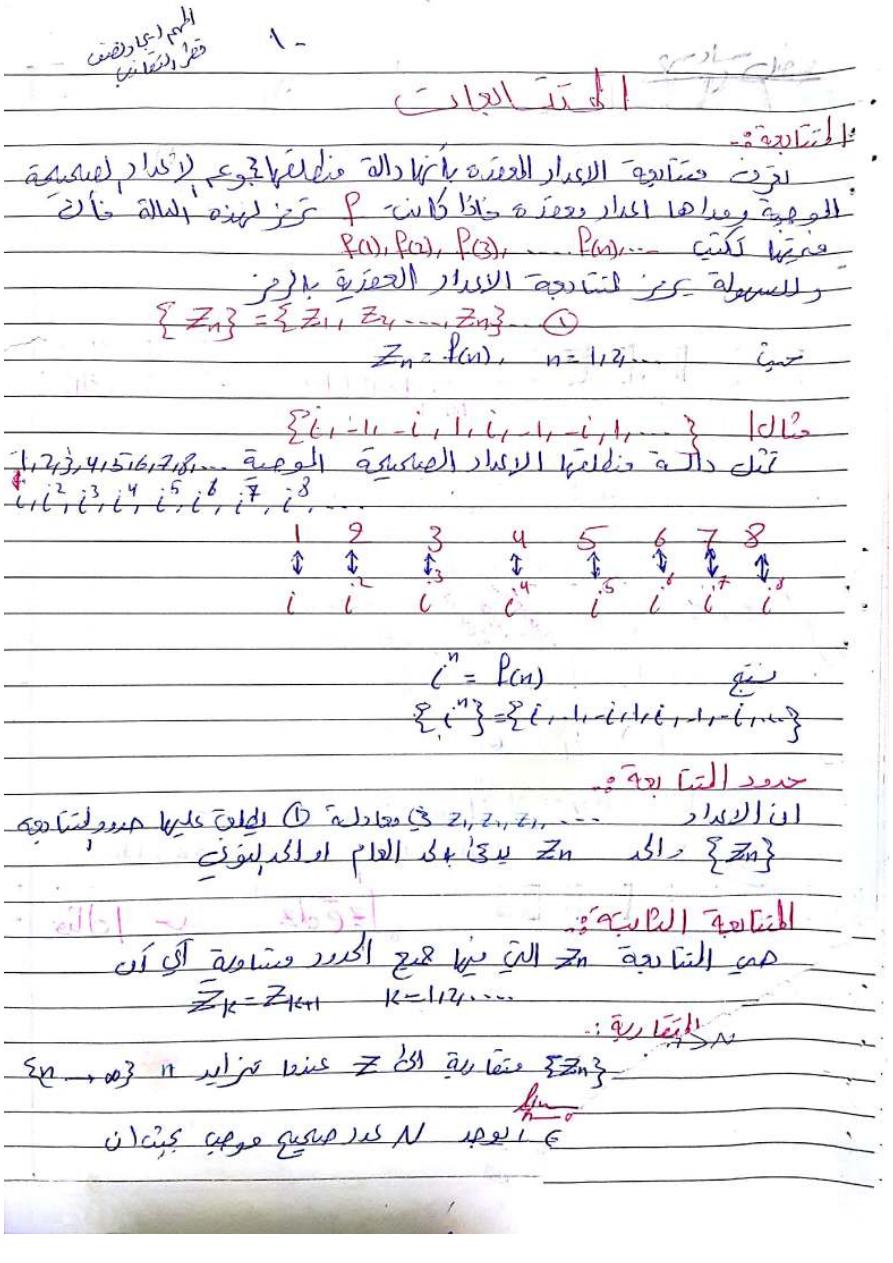 المهم ايجاد نصف
قطر التقارب
١-
المتتابعات
المتتابعة:-
تعرف متتابعة الاعداد المعقدة بأنها دالة منطلقها مجموعة الاعداد الصحيحة
الموجبة ومداها اعداد معقدة فاذا كانت f ترمز لهذه الدالة فأن
قيمتها تكتب f(1), f(2), f(3), .... f(n), ...
وللسهولة يرمز لمتتابعة الاعداد العقدية بالرمز
{Zn} = {Z1, Z2, ..., Zn} ... ①
حيث Zn = f(n), n = 1,2,...
مثال/ {i, -1, -i, 1, i, -1, -i, 1, ...}
تمثل دالة منطلقها الاعداد الصحيحة الموجبة 1,2,3,4,5,6,7,8,...
i, i², i³, i⁴, i⁵, i⁶, i⁷, i⁸, ...
1 2 3 4 5 6 7 8
↕ ↕ ↕ ↕ ↕ ↕ ↕ ↕
i i² i³ i⁴ i⁵ i⁶ i⁷ i⁸
ينتج iⁿ = f(n)
{iⁿ} = {i, -1, -i, 1, i, -1, -i, ...}
حدود المتتابعة:-
ان الاعداد Z1, Z1, Z1, .... في معادلة ① يطلق عليها حدود المتتابعة
{Zn} والحد Zn يدعى بالحد العام او الحد النوني
المتتابعة الثابتة:-
هي المتتابعة Zn التي فيها جميع الحدود متساوية أي أن
Zk = Zk+1 k = 1,2,....
المتقاربة:-
{Zn} متقاربة الى Z عندما تتزايد n {n → ∞}
lim
∈ يوجد N عدد صحيح موجب بحيث ان